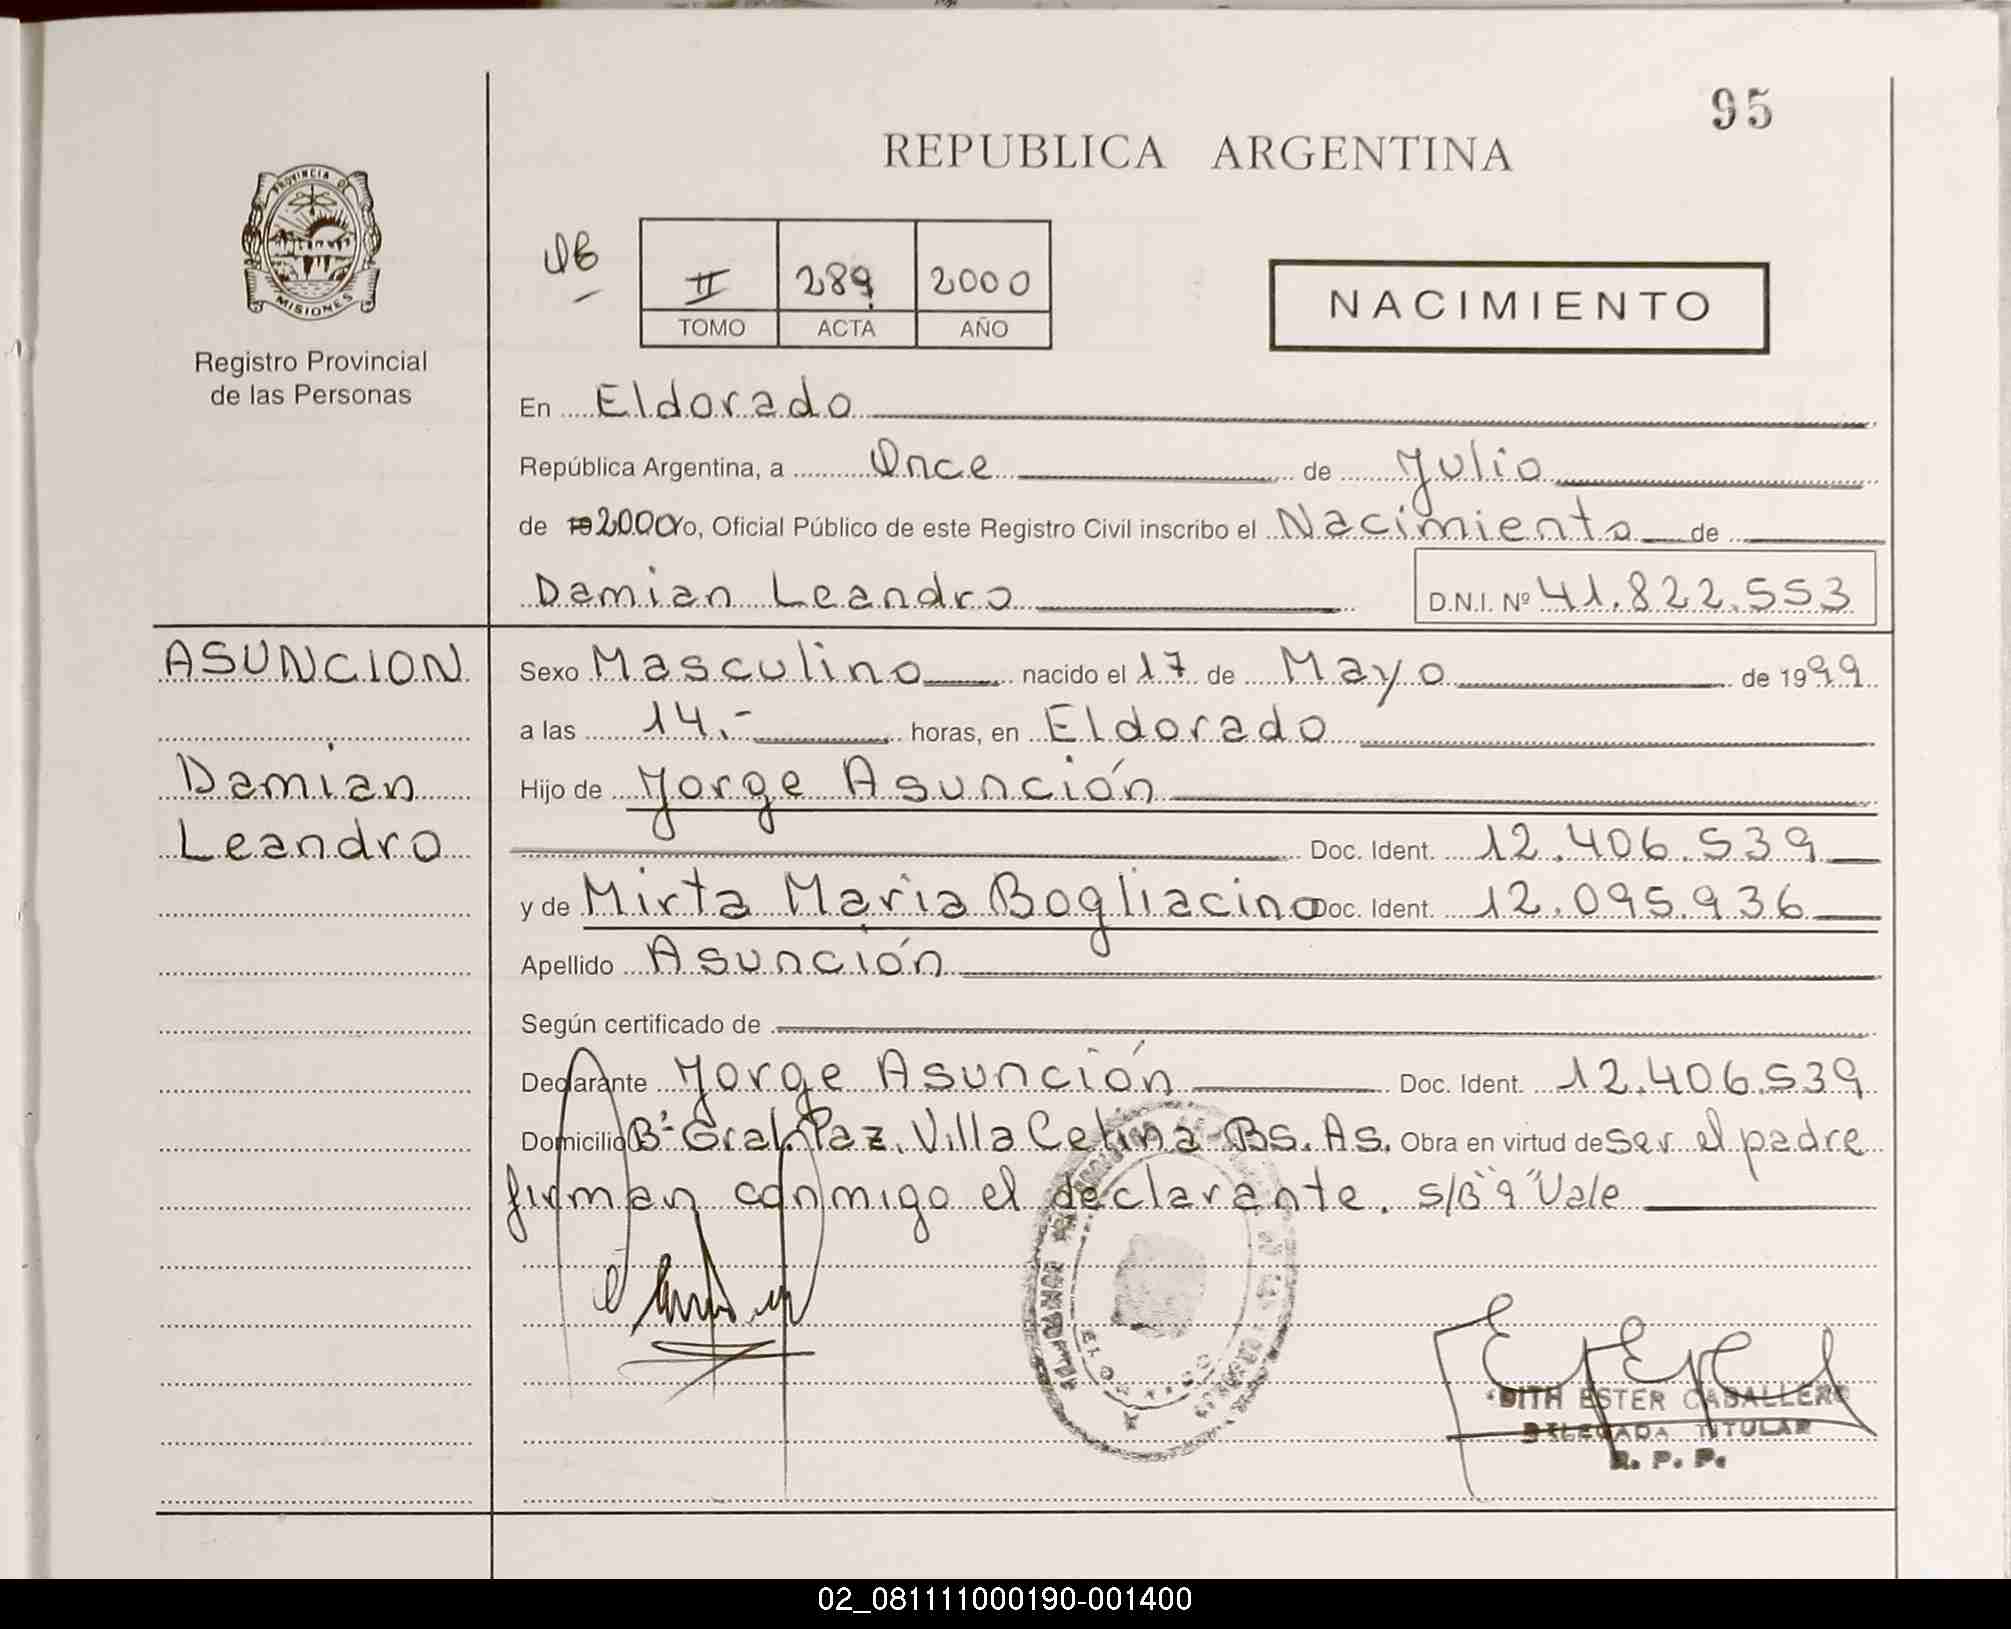 95
REPUBLICA ARGENTINA
PROVINCIA DE
MISIONES
Registro Provincial
de las Personas
II 289 2000
TOMO ACTA AÑO
NACIMIENTO
En Eldorado
República Argentina, a Once de Julio
de 192000 Yo, Oficial Público de este Registro Civil inscribo el Nacimiento de
Damian Leandro D.N.I. Nº 41.822.553
ASUNCION
Damian
Leandro
Sexo Masculino nacido el 17 de Mayo de 1999
a las 14.- horas, en Eldorado
Hijo de Jorge Asunción
Doc. Ident. 12.406.539
y de Mirta Maria Bogliacino Doc. Ident. 12.095.936
Apellido Asunción
Según certificado de
Declarante Jorge Asunción Doc. Ident. 12.406.539
Domicilio Bº Gral Paz. Villa Celina Bs. As. Obra en virtud de ser el padre
firman conmigo el declarante. s/B "9" Vale
EDITH ESTER CABALLERO
DELEGADA TITULAR
R. P. P.
02_081111000190-001400